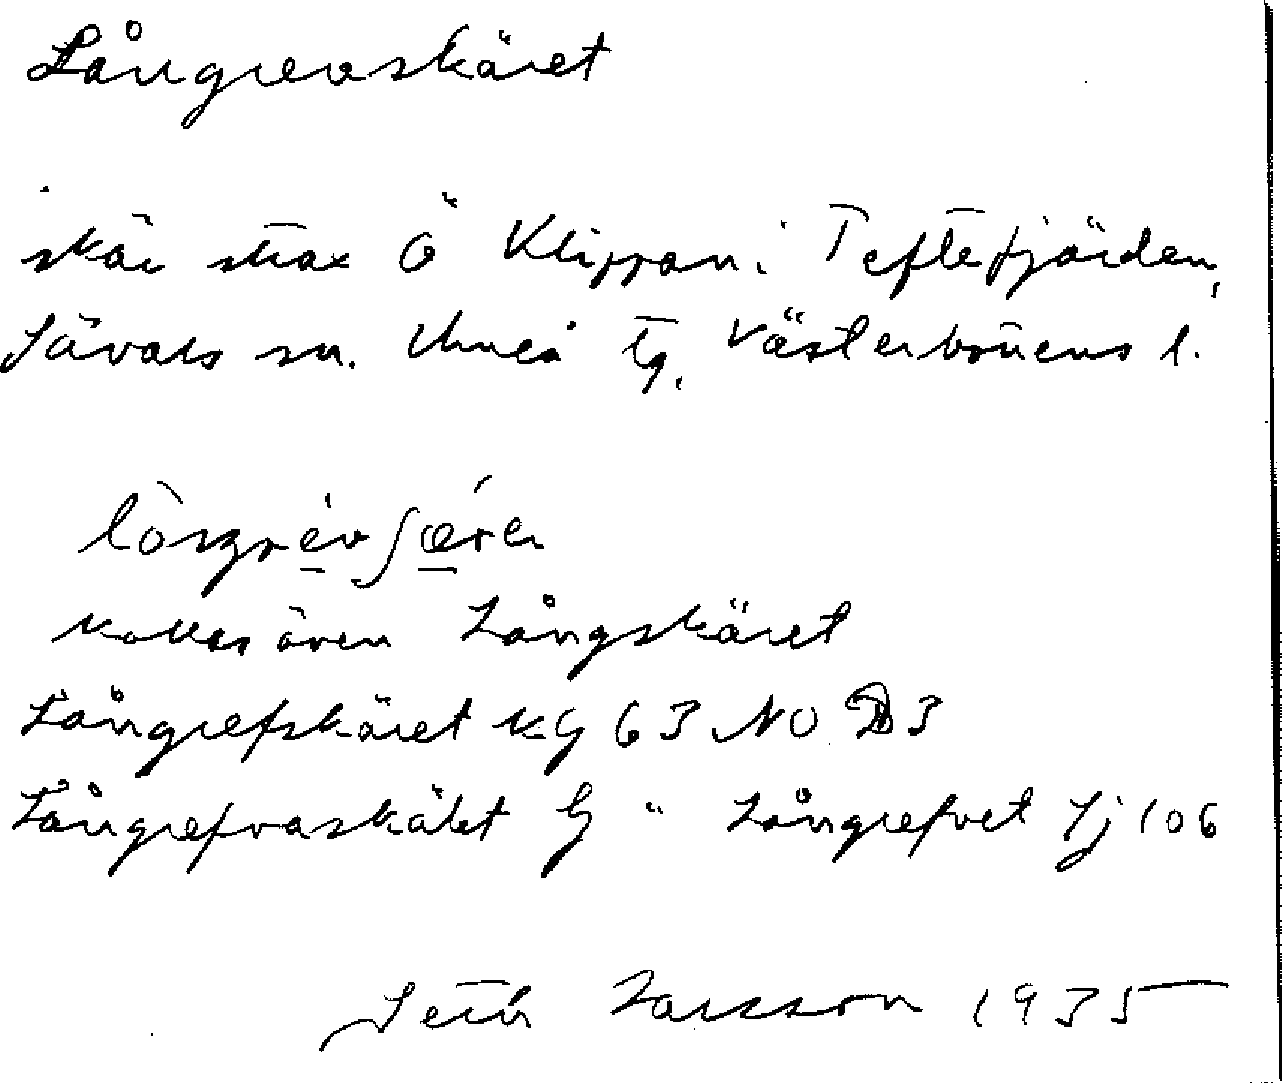 Långrevaskäret
skär strax Ö Klippan i Teftefjärden,
Sävars sn. Umeå tg. Västerbottens l.
kallas även Långskäret
Långrefskäret KG 63 NO B3
Långrefvaskäret G " Långrefvet Sj 106
Seth Larsson 1935